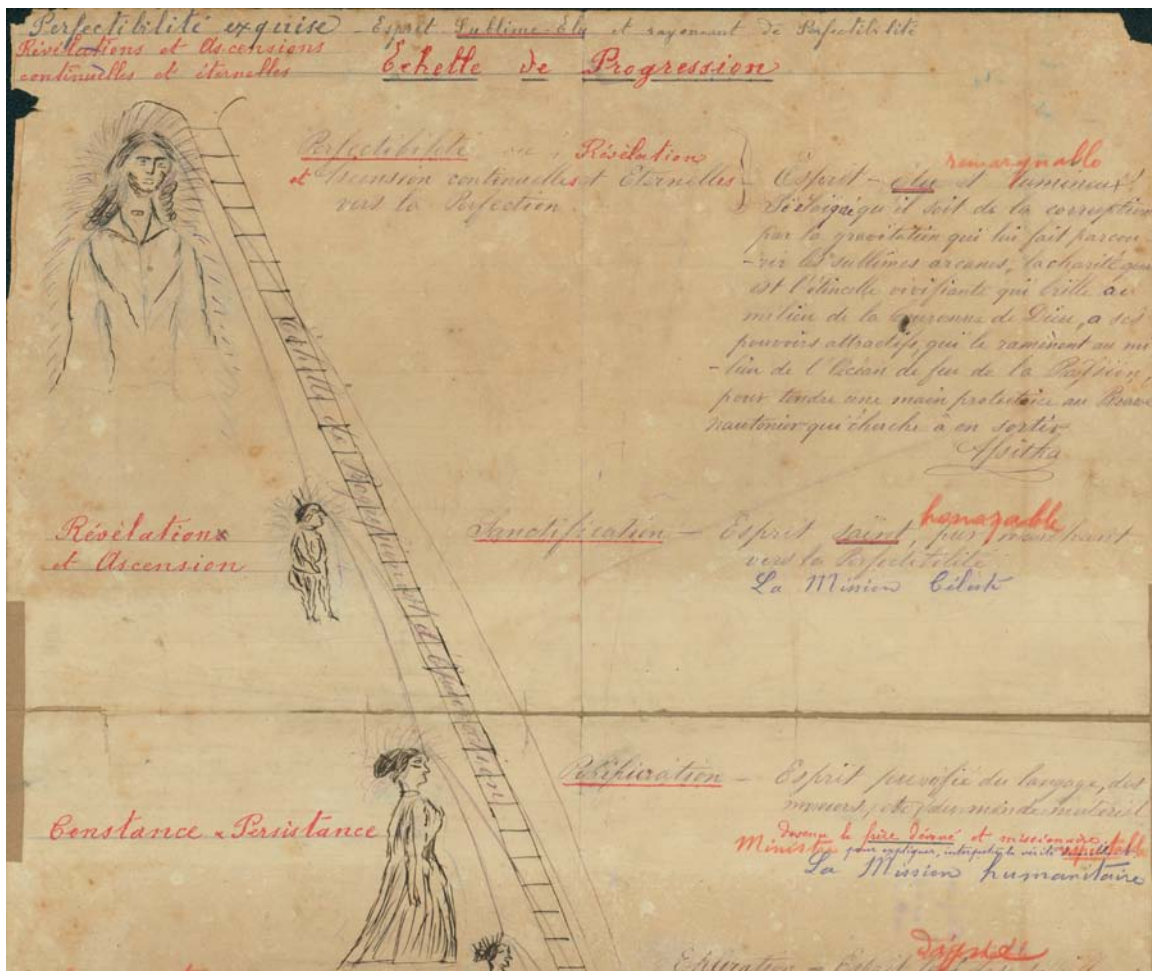 Perfectibilité exquise – Esprit Sublime-Elu et rayonnant de Perfectibilité
Révélations et Ascensions
continuelles et éternelles
Échelle de Progression
Perfectibilité ou Révélation
et Ascension continuelles et Eternelles
vers la Perfection.
remarquable
Esprit – élu et lumineux.
qu'il soit de la corruption
par la gravitation qui lui fait parcou
-rir les sublimes arcanes, la charité qui
est l'étincelle vivifiante qui brille au
milieu de la Couronne de Dieu, a ses
pouvoirs attractifs, qui le ramènent au mi
-lieu de l'Océan de feu de la
pour tendre une main protectrice au
nautonier qui cherche à en sortir.
Assitha
Échelle de
Révélation
et Ascension
Sanctification – Esprit saint, pur
honorable
vers la Perfectibilité
La Mission Céleste
Constance & Persistance
Purification – Esprit purifié du langage, des
moeurs, etc du monde matériel
devenu le frère dévoué et missionnaire
Ministre pour expliquer, interpréter la vérité
respectable
La Mission humanitaire
digne de
Epuration – Esprit